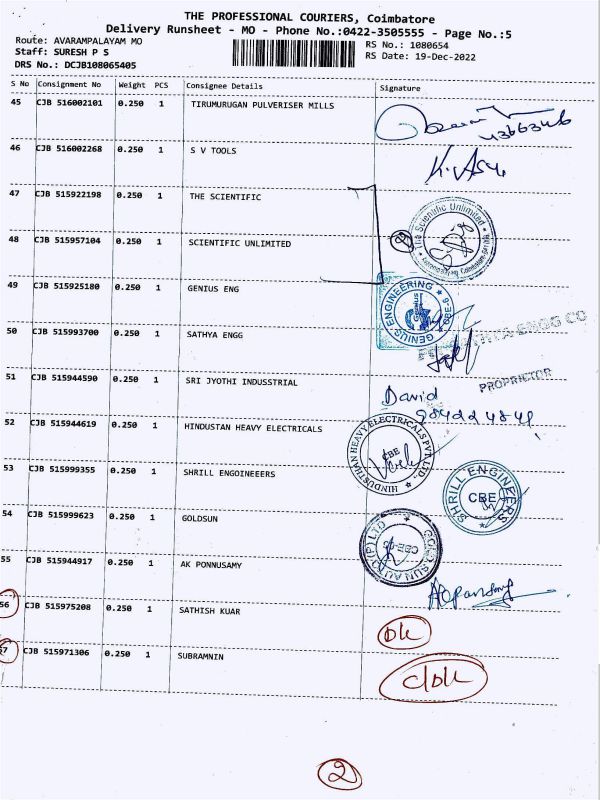 THE PROFESSIONAL COURIERS, Coimbatore
Delivery Runsheet - MO - Phone No.:0422-3505555 - Page No.:5
Route: AVARAMPALAYAM MO
RS No.: 1080654
Staff: SURESH P S
RS Date: 19-Dec-2022
DRS No.: DCJB108065405
S No Consignment No Weight PCS Consignee Details Signature
45 CJB 516002101 0.250 1 TIRUMURUGAN PULVERISER MILLS
46 CJB 516002268 0.250 1 S V TOOLS
47 CJB 515922198 0.250 1 THE SCIENTIFIC
The Scientific Unlimited
48 CJB 515957104 0.250 1 SCIENTIFIC UNLIMITED
2
49 CJB 515925180 0.250 1 GENIUS ENG
GENIUS ENGINEERING CBE-6
Genius
50 CJB 515993700 0.250 1 SATHYA ENGG
ENGG CO
PROPRIETOR
51 CJB 515944590 0.250 1 SRI JYOTHI INDUSSTRIAL
David
52 CJB 515944619 0.250 1 HINDUSTAN HEAVY ELECTRICALS
HINDUSTHAN HEAVY ELECTRICALS PVT. LTD.,
CBE
53 CJB 515999355 0.250 1 SHRILL ENGOINEEERS
SHRILL ENGINEERS
CBE
54 CJB 515999623 0.250 1 GOLDSUN
55 CJB 515944917 0.250 1 AK PONNUSAMY
56 CJB 515975208 0.250 1 SATHISH KUAR
57 CJB 515971306 0.250 1 SUBRAMNIN
2